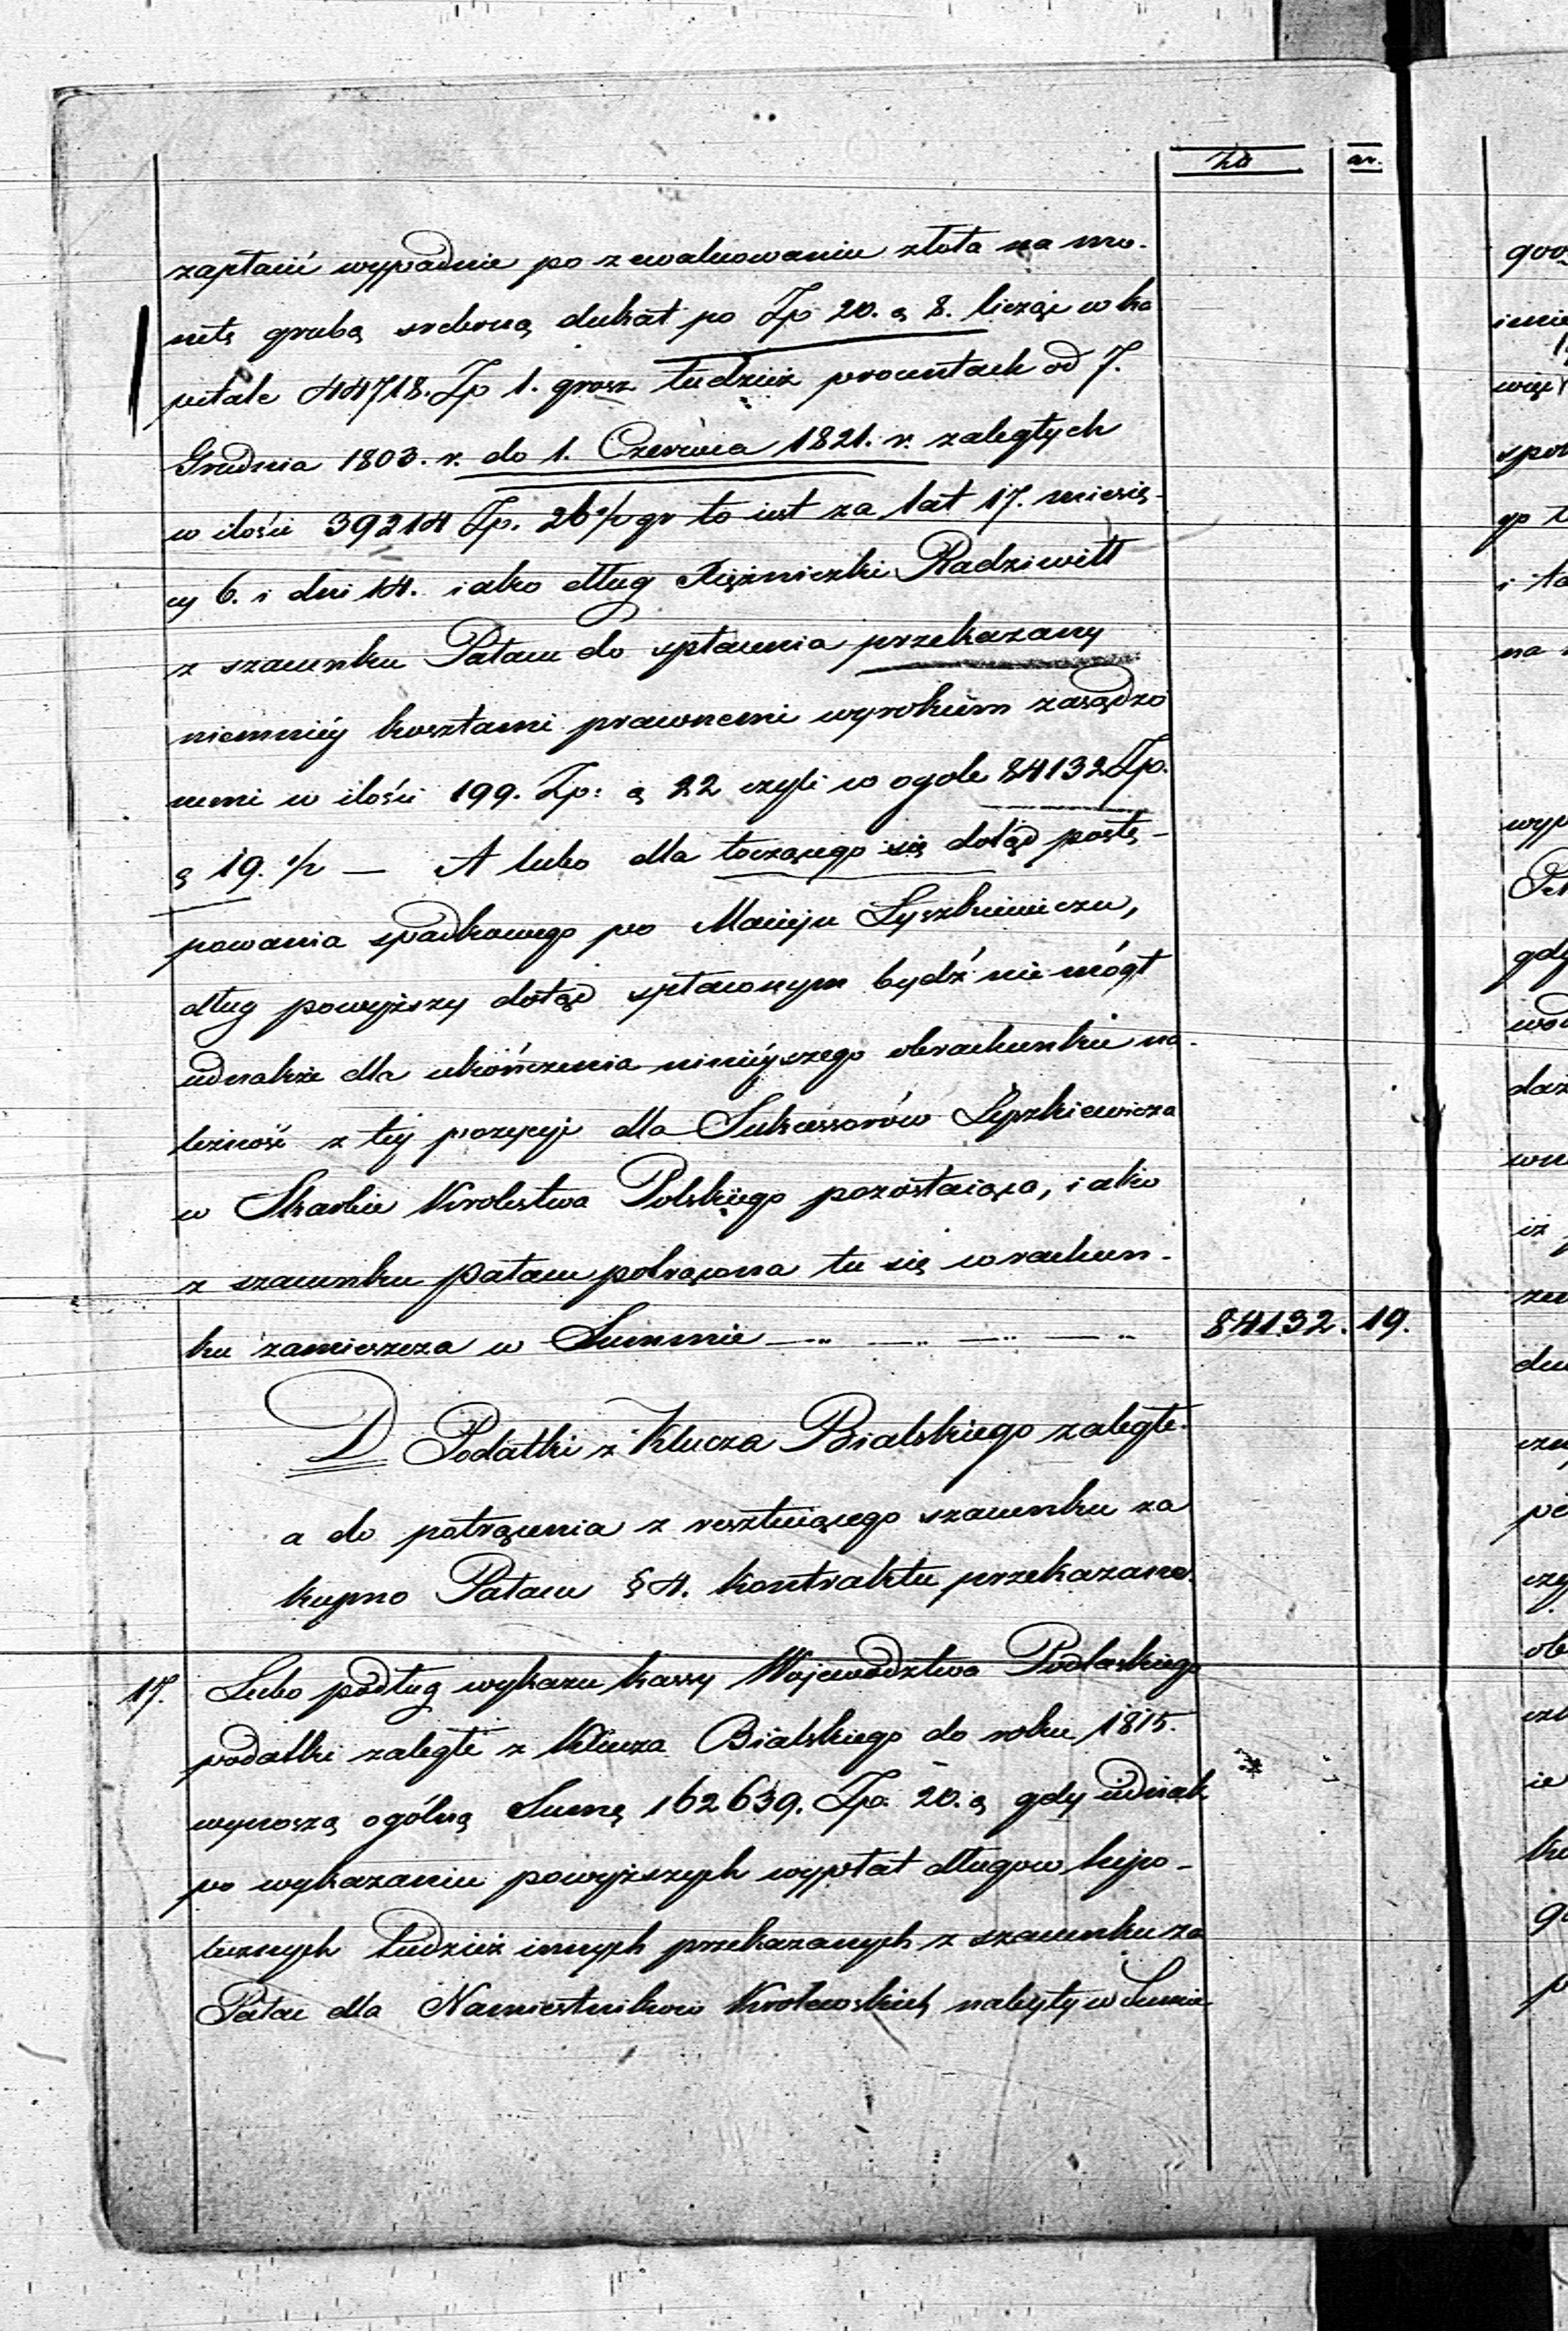 Zło gr.
zapłacić wypadnie po zewaluowaniu złota na mo-
netę grubą srebrną dukat po Zp 20. g 8. licząc w ka
pitale 44718. Zp 1. grosz tudzież procentach od 7.
Grudnia 1803. r. do 1. Czerwca 1821. r. zaległych
w ilości 39214 Zp. 26 1/2 gr to iest za lat 17. miesię-
cy 6. i dni 14. iako dług Xiężniczki Radziwiłł
z szacunku Pałacu do spłacenia przekazany
niemniéy kosztami prawnemi wyrokiem zasądzo
nemi w ilości 199. Zp: g 22 czyli w ogole 84132 Zp.
g 19. 1/2 — A lubo dla toczącego się dotąd postę-
powania spadkowego po Macieju Łyszkiewiczu,
dług powyższy dotąd spłaconym bydź nie mógł
iednakże dla ukończenia ninieyszego obrachunku na-
leżność z téy pozycyi dla Sukcessorów Łyszkiewicza
w Skarbie Krolestwa Polskiego pozostaiąca, iako
z szacunku pałacu potrącona tu się w rachun-
ku zamieszcza w Summie — .. — .. — .. — .. 84132. 19.
D Podatki z Klucza Bialskiego zaległe
a do potrącenia z resztuiącego szacunku za
kupno Pałacu § 4. kontraktu przekazane.
17. Lubo podług wykazu kassy Województwa Podlaskiego
podatki zaległe z Klucza Bialskiego do roku 1815.
wynoszą ogólną Sumę 162639. Zp. 20. g gdy iednak
po wykazaniu powyższych wypłat długow hipo-
tecznych tudzież innych przekazanych z szacunku za
Pałac dla Namiestnikow Krolewskich nabyty w Sumie